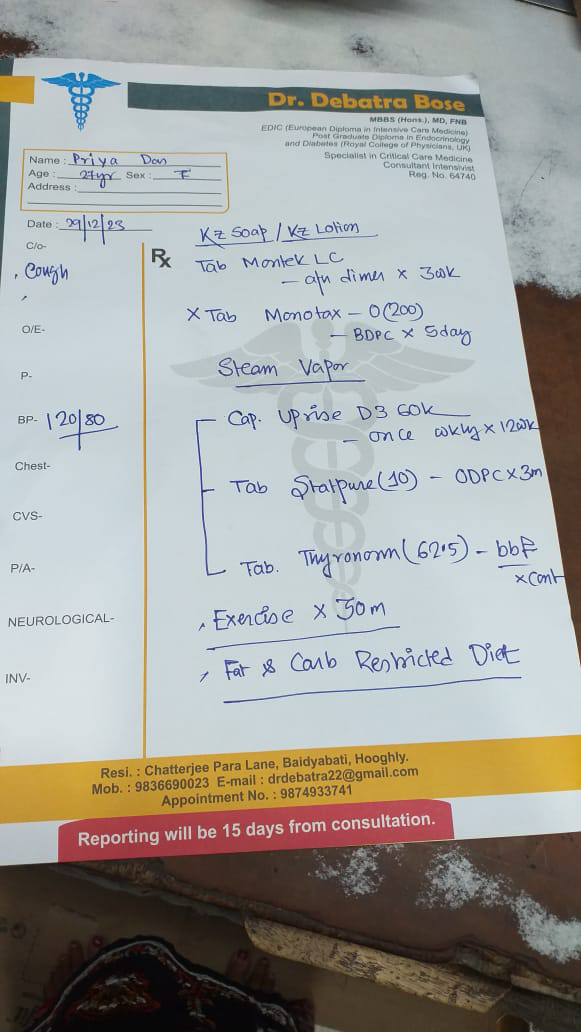 Dr. Debatra Bose
MBBS (Hons.), MD, FNB
EDIC (European Diploma in Intensive Care Medicine)
Post Graduate Diploma in Endocrinology
and Diabetes (Royal College of Physicians, UK)
Specialist in Critical Care Medicine
Consultant Intensivist
Reg. No. 64740
Name : Priya Dan
Age : 27yr Sex : F
Address :
Date : 29/12/23
C/o-
Cough
O/E-
P-
BP- 120/80
Chest-
CVS-
P/A-
NEUROLOGICAL-
INV-
Rx
Kz Soap / Kz Lotion
Tab Montek LC
- a/n dinner x 3wk
X Tab Monotax - O (200)
- BDPC x 5day
Steam Vapor
Cap. Uprise D3 60k
- once wkly x 12wk
Tab Statpure (10) - ODPC x 3m
Tab. Thyronorm (62.5) - bbf
x cont
Exercise x 30m
Fat & Carb Restricted Diet
Resi. : Chatterjee Para Lane, Baidyabati, Hooghly.
Mob. : 9836690023 E-mail : drdebatra22@gmail.com
Appointment No. : 9874933741
Reporting will be 15 days from consultation.